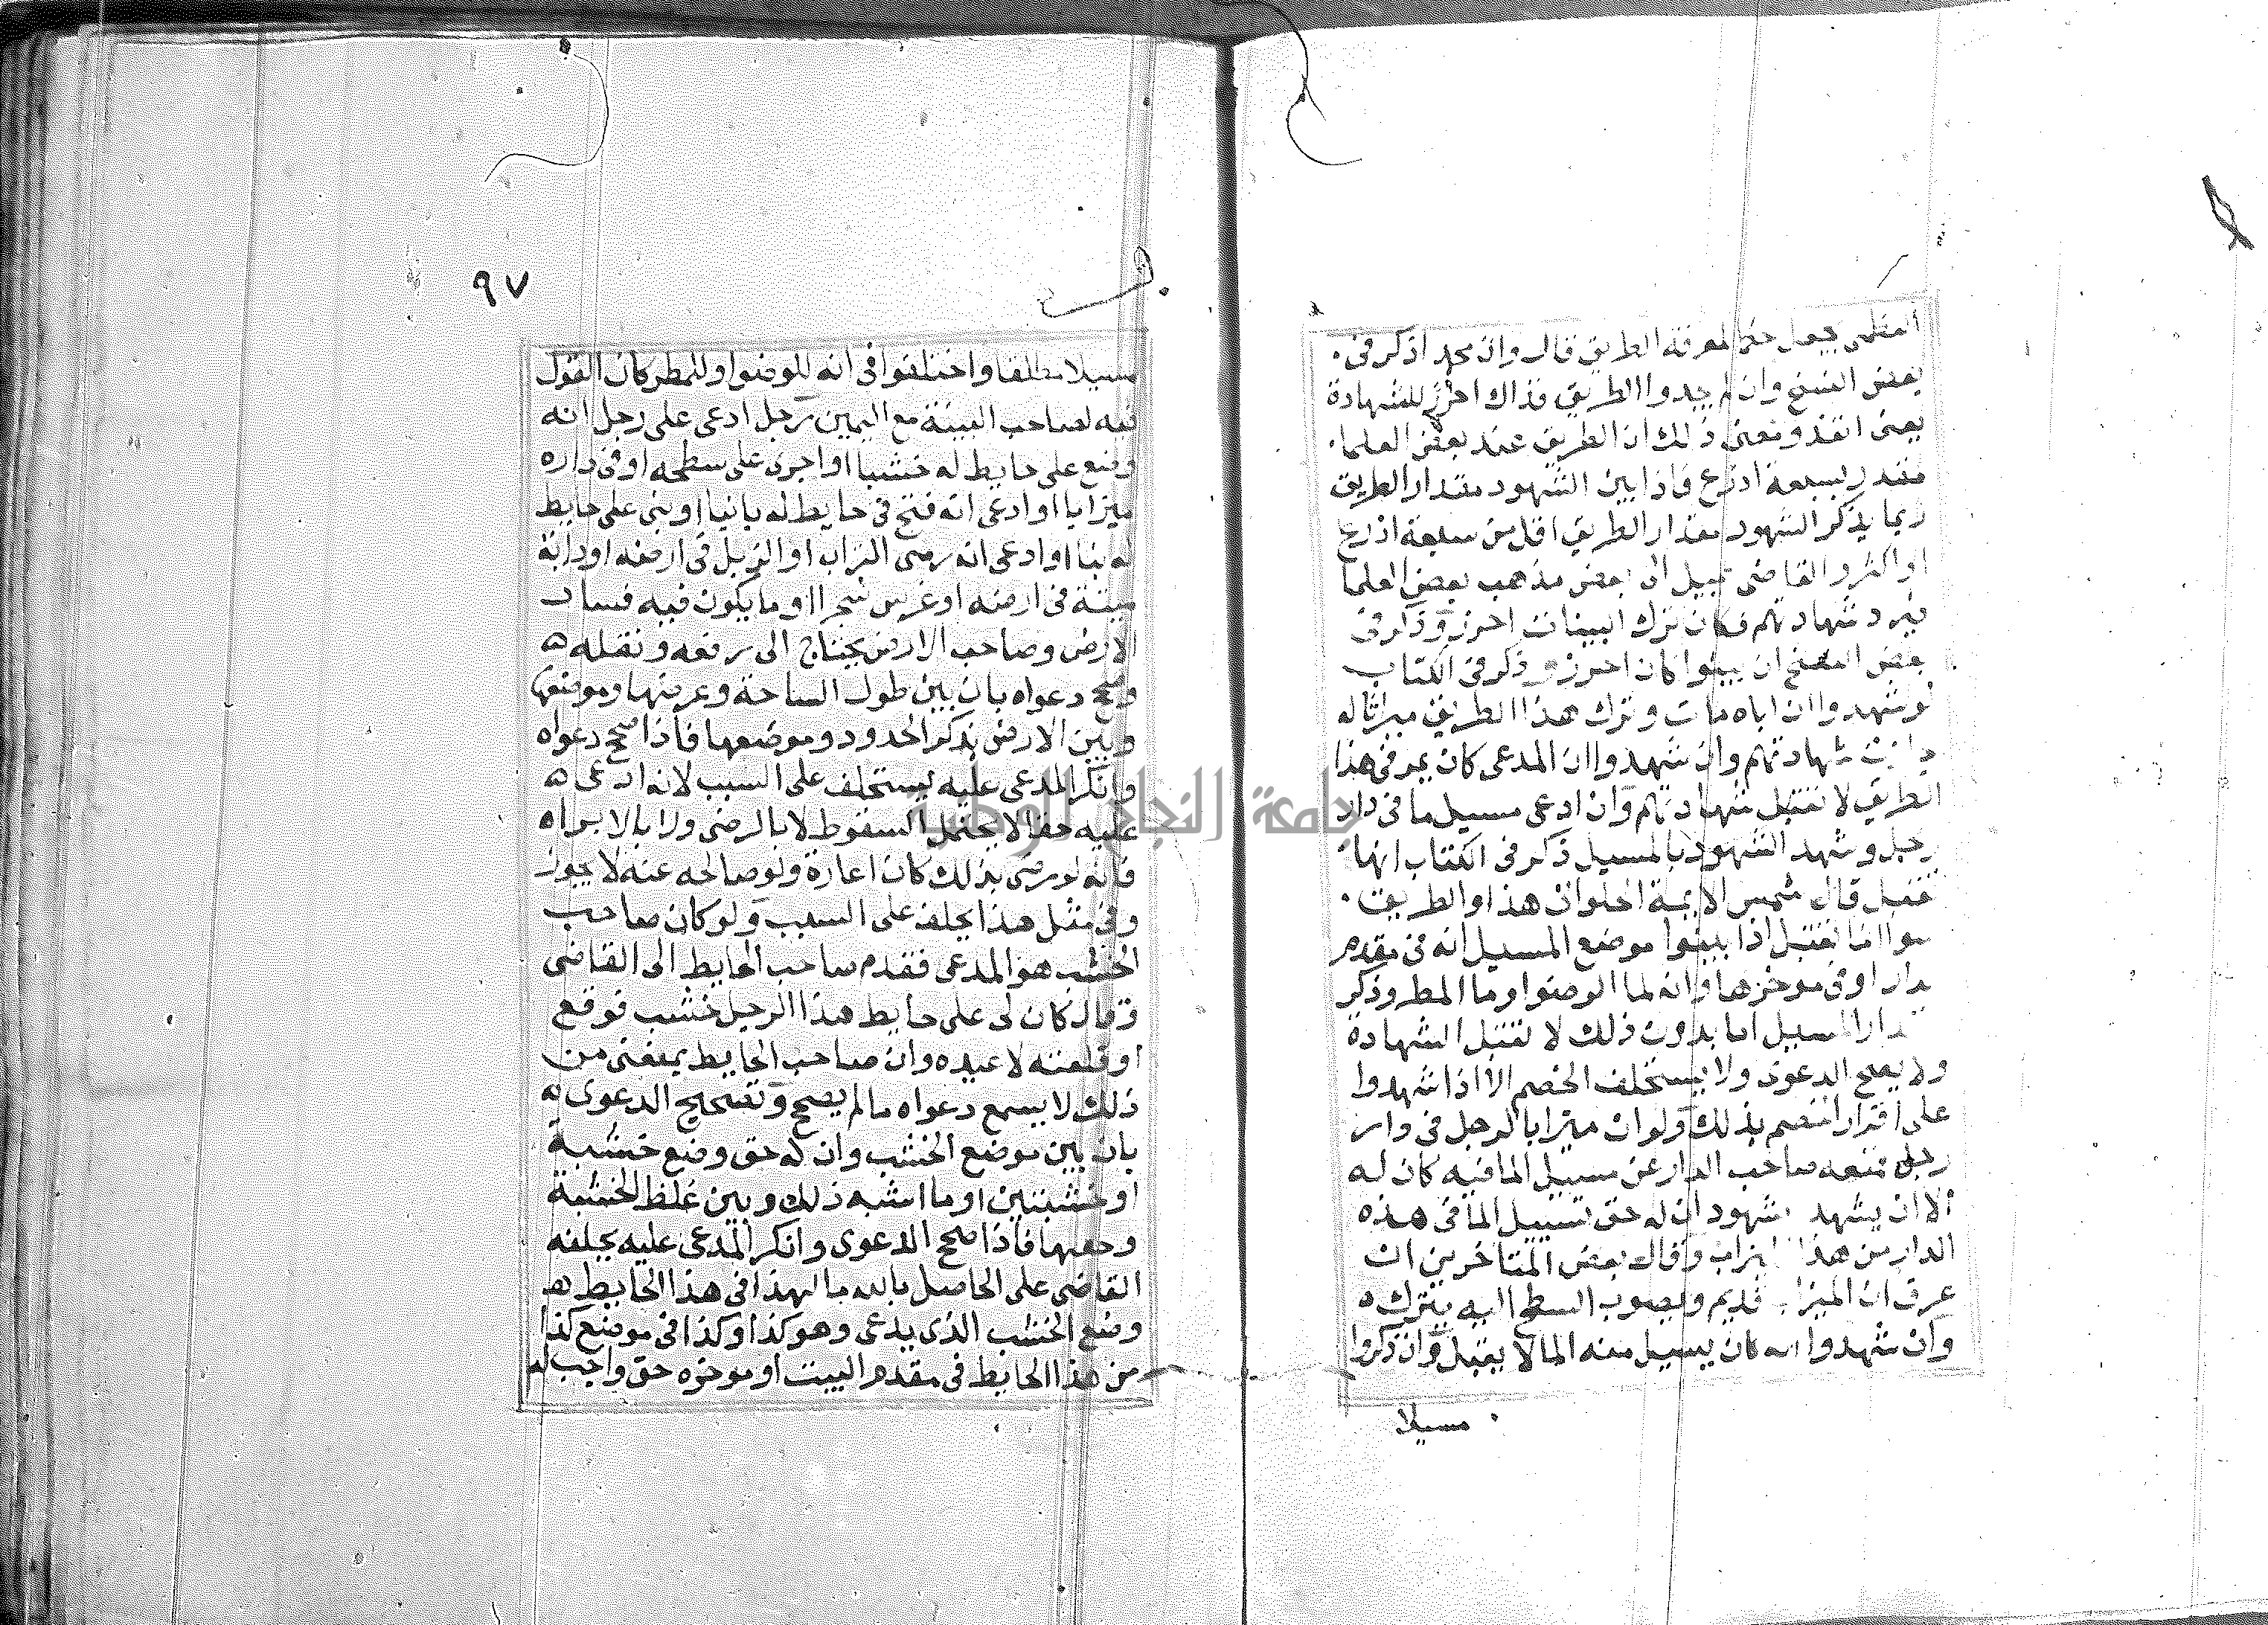 يجعل حكما لمعرفة الطريق قال وان محمد اذكر فى
بعض النسخ وان لم يجدوا الطريق فذاك احرز للشهادة
يعنى انفذ ومعنى ذلك ان الطريق عند بعض العلما
مقدر بسبعة اذرع فاذا بين الشهود مقدار الطريق
ربما يذكر الشهود مقدار الطريق اقل من سبعة اذرع
او اكثر والقاضى يميل الى بعض مذهب بعض العلما
فيرد شهادتهم فكان ترك البينات احرز وذكر فى
بعض النسخ ان بينوا كان احرز وذكر فى الكتاب
لو شهدوا ان اباه مات وترك هذا الطريق ميراثا له
جازت شهادتهم وان شهدوا ان المدعى كان يمر فى هذا
الطريق لا تقبل شهادتهم وان ادعى مسيل ما فى دار
رجل وشهد الشهود بالمسيل ذكر فى الكتاب انها
تقبل قال شمس الايمة الحلوان هذا والطريق
سوا انما تقبل اذا بينوا موضع المسيل انه فى مقدم
الدار او فى موخرها وانه لما الوضوا وما المطر وذكر
مقدار المسيل اما بدون ذلك لا تقبل الشهادة
ولا يصح الدعوى ولا يستحلف الخصم الا اذا شهدوا
على اقرار الخصم بذلك ولو ان ميزابا لرجل فى دار
رجل منعه صاحب الدار عن مسيل الما فيه كان له
الا ان يشهد الشهود ان له حق تسييل الما فى هذه
الدار من هذا الميزاب وقال بعض المتاخرين ان
عرف ان الميزاب قديم وبصوب السطح اليه يترك
وان شهدوا انه كان يسيل منه الما لا يقبل وان ذكروا
مسيلا
٩٧
مسيلا مطلقا واختلفوا فى انه للوضوا وللمطر كان القول
فيه لصاحب البينة مع اليمين رجل ادعى على رجل انه
وضع على حايط له خشبا او اجرى على سطحه او فى داره
ميزابا او ادعى انه فتح فى حايط له بابا او بنى على حايط
له بنا او ادعى انه رمى التراب او الزبل فى ارضه او دابة
ميتة فى ارضه او غرس شجرا او ما يكون فيه فساد
الارض وصاحب الارض يحتاج الى رفعه ونقله
وصح دعواه بان بين طول الساحة وعرضها وموضعها
وبين الارض بذكر الحدود وموضعها فاذا صح دعواه
وانكر المدعى عليه يستحلف على السبب لانه ادعى
عليه حقا لا يحتمل السقوط لا بالرضى ولا بالابراه
فانه لو رضى بذلك كان اعارة ولو صالحه عنه لا يجوز
وفى مثل هذا يحلف على السبب ولو كان صاحب
الخشب هو المدعى فقدم صاحب الحايط الى القاضى
وقال كان لى على حايط هذا الرجل خشب فوقع
او قلعته لاعيده وان صاحب الحايط يمنعنى من
ذلك لا يسمع دعواه ما لم يصح وتصحيح الدعوى
بان بين موضع الخشب وان له حق وضع خشبة
او خشبتين او ما اشبه ذلك وبين غلظ الخشبة
وخفتها فاذا صح الدعوى وانكر المدعى عليه يحلفه
القاضى على الحاصل بالله ما لهذا فى هذا الحايط
وضع الخشب الذى يدعى وهو كذا وكذا فى موضع كذا
من هذا الحايط فى مقدم البيت او موخره حق واجب له
جامعة النجاح الوطنية